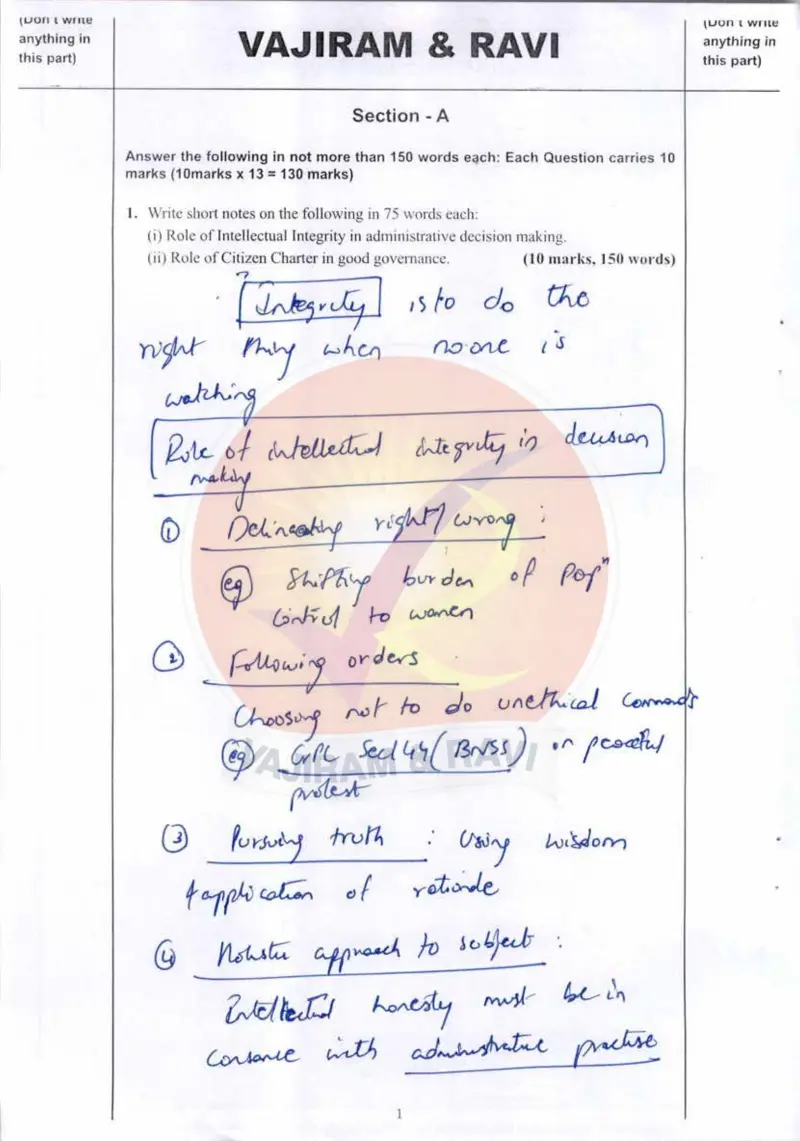 (Don't write
anything in
this part)
VAJIRAM & RAVI
(Don't write
anything in
this part)
Section - A
Answer the following in not more than 150 words each: Each Question carries 10
marks (10marks x 13 = 130 marks)
1. Write short notes on the following in 75 words each:
(i) Role of Intellectual Integrity in administrative decision making.
(ii) Role of Citizen Charter in good governance. (10 marks, 150 words)
Integrity is to do the
right thing when no one is
watching
Role of intellectual integrity in decision
making
① Delineating right/wrong :
eg Shifting burden of popⁿ
control to women
② Following orders
Choosing not to do unethical commands
eg CrPC Sec144 (BNSS) on peaceful
protest
VAJIRAM & RAVI
③ Pursuing truth : Using wisdom
& application of rationale
④ approach to subject :
Intellectual honesty must be in
with administrative practise
1